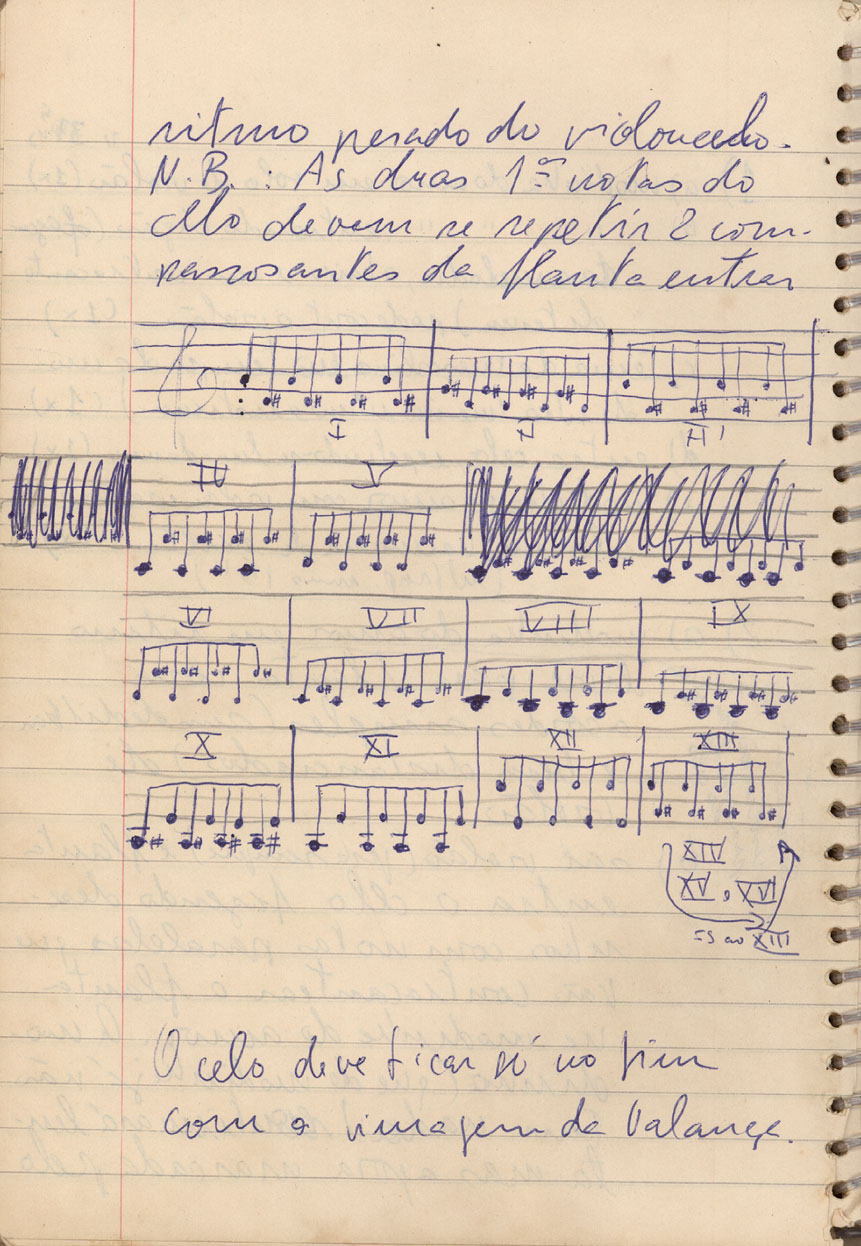 ritmo pesado do violoncelo.
N.B.: As duas 1ªs notas do
cello devem se repetir 2 com-
passos antes da flauta entrar
I II III
IV V
VI VII VIII IX
X XI XII XIII
XIV
XV, XVI
= s ao XIII
O celo deve ficar só no fim
com a imagem da balança.